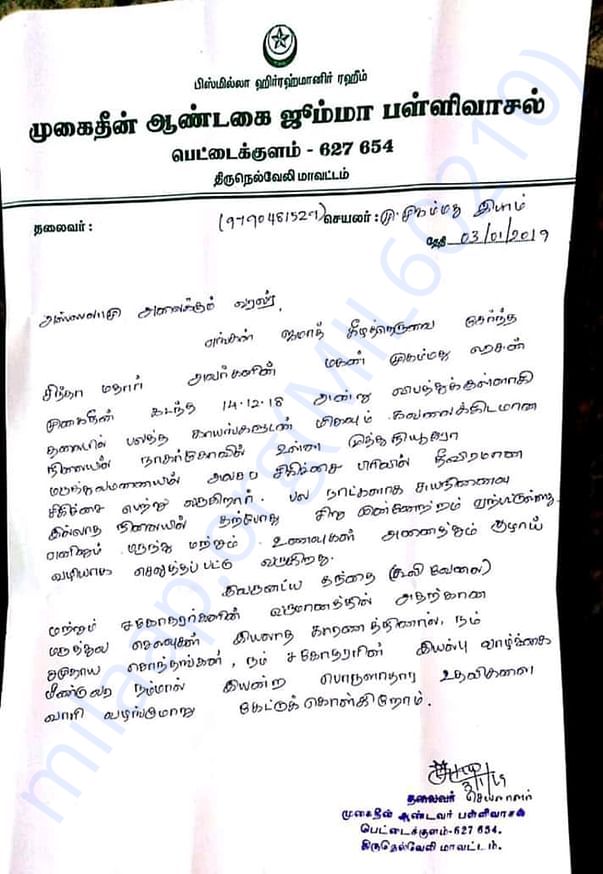 பிஸ்மில்லா ஹிர்ரஹ்மானிர் ரஹீம்
முகைதீன் ஆண்டகை ஜும்மா பள்ளிவாசல்
பெட்டைக்குளம் - 627 654
திருநெல்வேலி மாவட்டம்
தலைவர் : (9790481527) செயலர் : மு. முகம்மது இமாம்
தேதி 03/01/2019
அஸ்ஸலாமு அலைக்கும் வரஹ்,
எங்கள் ஜமாத் கீழத்தெருவை சேர்ந்த
சிந்தா மதார் அவர்களின் மகன் முகம்மது ஹசன்
முகைதீன் கடந்த 14.12.18 அன்று விபத்துக்குள்ளாகி
தலையில் பலத்த காயங்களுடன் மிகவும் கவலைக்கிடமான
நிலையில் நாகர்கோவில் உள்ள முத்து நியூரோ
மருத்துவமணையில் அவசர சிகிச்சை பிரிவில் தீவிரமான
சிகிச்சை பெற்று வருகிறார். பல நாட்களாக சுயநினைவு
இல்லாத நிலையில் தற்போது சிறு முன்னேற்றம் ஏற்பட்டுள்ளது.
எனினும் மருந்து மற்றும் உணவுகள் அனைத்தும் குழாய்
வழியாக செலுத்தப் பட்டு வருகிறது.
இவருடைய தந்தை (கூலி வேலை)
மற்றும் சகோதரர்களின் வருமானத்தில் அதற்கான
மருத்துவ செலவுகள் இயலாத காரணத்தினால், நம்
சமுதாய சொந்தங்கள், நம் சகோதரரின் இயல்பு வாழ்க்கை
மீண்டு வர நம்மால் இயன்ற பொருளாதார உதவிகளை
வாரி வழங்குமாறு கேட்டுக் கொள்கிறோம்.
3/1/19
தலைவர் செயலாளர்
முகைதீன் ஆண்டவர் பள்ளிவாசல்
பெட்டைக்குளம்-627 654.
திருநெல்வேலி மாவட்டம்.
milaap.org(MIL60210)